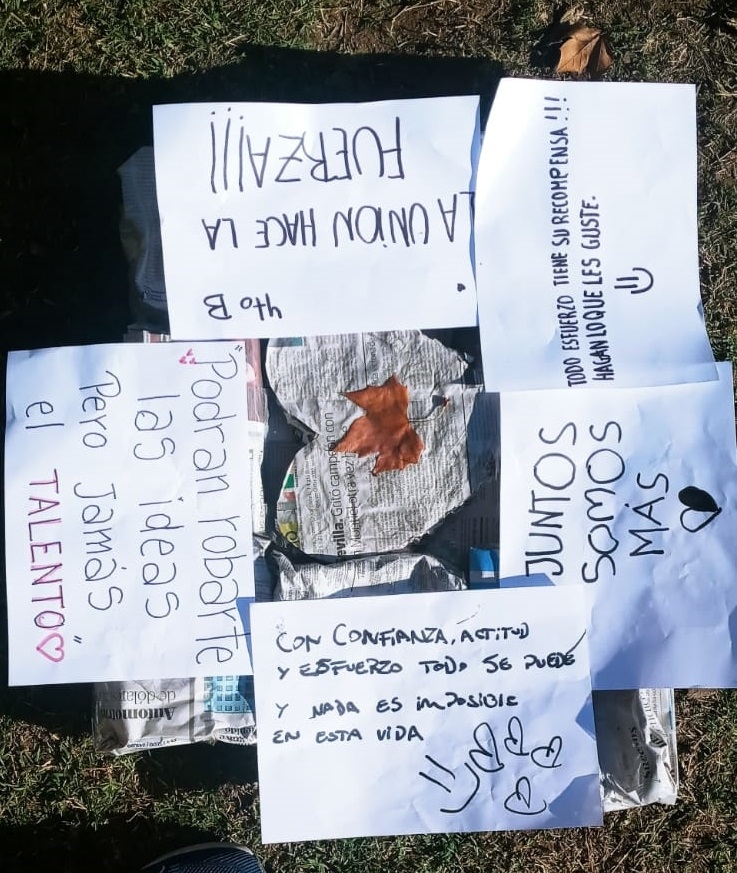 LA UNION HACE LA
FUERZA!!!
4to B
TODO ESFUERZO TIENE SU RECOMPENSA!!!
HAGAN LO QUE LES GUSTE.
"Podran robarte
las ideas
Pero Jamás
el TALENTO"
JUNTOS
SOMOS
MÁS
CON CONFIANZA, ACTITUD
Y ESFUERZO TODO SE PUEDE
Y NADA ES IMPOSIBLE
EN ESTA VIDA
evilla. Guto campeón con
Automotriz
de dólares